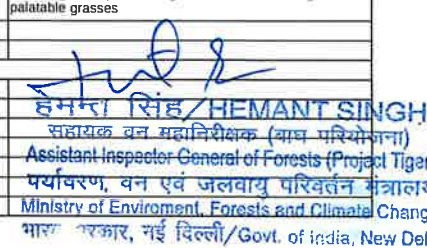 palatable grasses
हेमन्त सिंह/HEMANT SINGH
सहायक वन महानिरीक्षक (बाघ परियोजना)
Assistant Inspector General of Forests (Project Tiger
पर्यावरण, वन एवं जलवायु परिवर्तन मंत्रालय
Ministry of Enviroment, Forests and Climate Chang
भारत सरकार, नई दिल्ली/Govt. of India, New Del